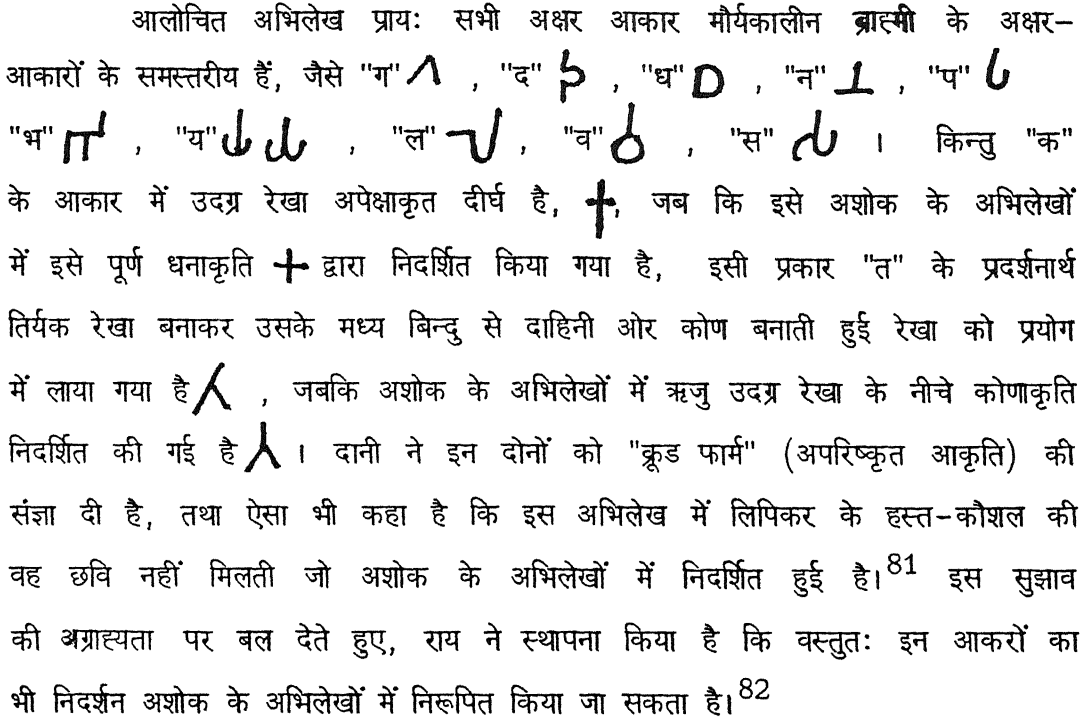 आलोचित अभिलेख प्राय: सभी अक्षर आकार मौर्यकालीन ब्राह्मी के अक्षर-
आकारों के समस्तरीय हैं, जैसे "ग" 𑀕 , "द" 𑀤 , "ध" 𑀥 , "न" 𑀦 , "प" 𑀧
"भ" 𑀪 , "य" 𑀬 𑀬 , "ल" 𑀮 , "व" 𑀯 , "स" 𑀲 । किन्तु "क"
के आकार में उदग्र रेखा अपेक्षाकृत दीर्घ है, 𑀓, जब कि इसे अशोक के अभिलेखों
में इसे पूर्ण धनाकृति 𑀓 द्वारा निदर्शित किया गया है, इसी प्रकार "त" के प्रदर्शनार्थ
तिर्यक रेखा बनाकर उसके मध्य बिन्दु से दाहिनी ओर कोण बनाती हुई रेखा को प्रयोग
में लाया गया है 𑀢 , जबकि अशोक के अभिलेखों में ऋजु उदग्र रेखा के नीचे कोणाकृति
निदर्शित की गई है 𑀢 । दानी ने इन दोनों को "क्रूड फार्म" (अपरिष्कृत आकृति) की
संज्ञा दी है, तथा ऐसा भी कहा है कि इस अभिलेख में लिपिकर के हस्त-कौशल की
वह छवि नहीं मिलती जो अशोक के अभिलेखों में निदर्शित हुई है।81 इस सुझाव
की अग्राह्यता पर बल देते हुए, राय ने स्थापना किया है कि वस्तुत: इन आकरों का
भी निदर्शन अशोक के अभिलेखों में निरूपित किया जा सकता है।82